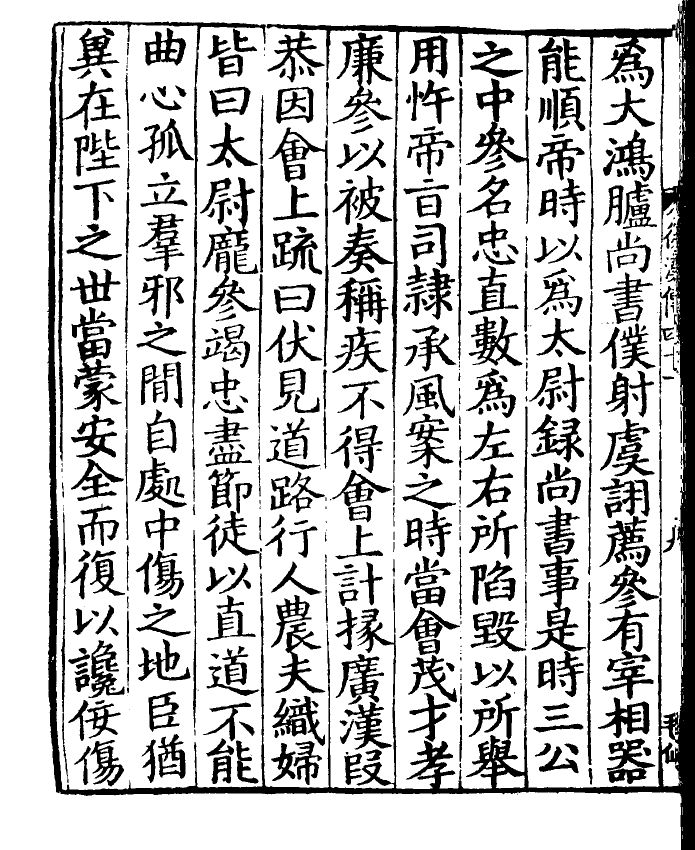 爲大鴻臚尚書僕射虞詡薦參有宰相器
能順帝時以爲太尉録尚書事是時三公
之中參名忠直數爲左右所陷毀以所舉
用忤帝㫖司隷承風案之時當會茂才孝
廉參以被奏稱疾不得會上計掾廣漢段
恭因會上疏曰伏見道路行人農夫織婦
皆曰太尉龐參竭忠盡節徒以直道不能
曲心孤立羣邪之間自處中傷之地臣猶
兾在陛下之世當蒙安全而復以讒佞傷